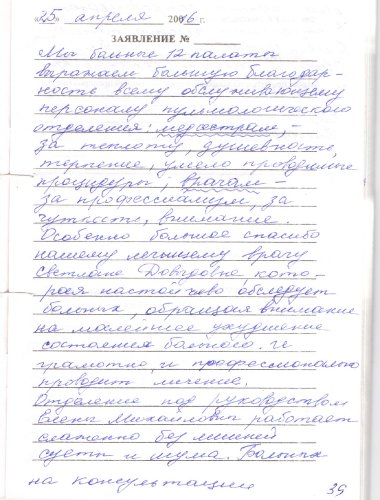 «25» апреля 2006 г.
ЗАЯВЛЕНИЕ №
Мы больные 12 палаты
выражаем большую благодар-
ность всему обслуживающему
персоналу пульмонологического
отделения: медсестрам, –
за теплоту, душевность,
терпение, умело проводимые
процедуры, врачам –
за профессионализм, за
чуткость, внимание.
Особенно большое спасибо
нашему лечащему врачу
Светлане Давыдовне, кото-
рая настойчиво обследует
больных, обращая внимание
на малейшее ухудшение
состояния больного. И
грамотно, и профессионально
проводит лечение.
Отделение под руководством
Елены Михайловны работает
слаженно без лишней
суеты и шума. Больных
на консультации
39